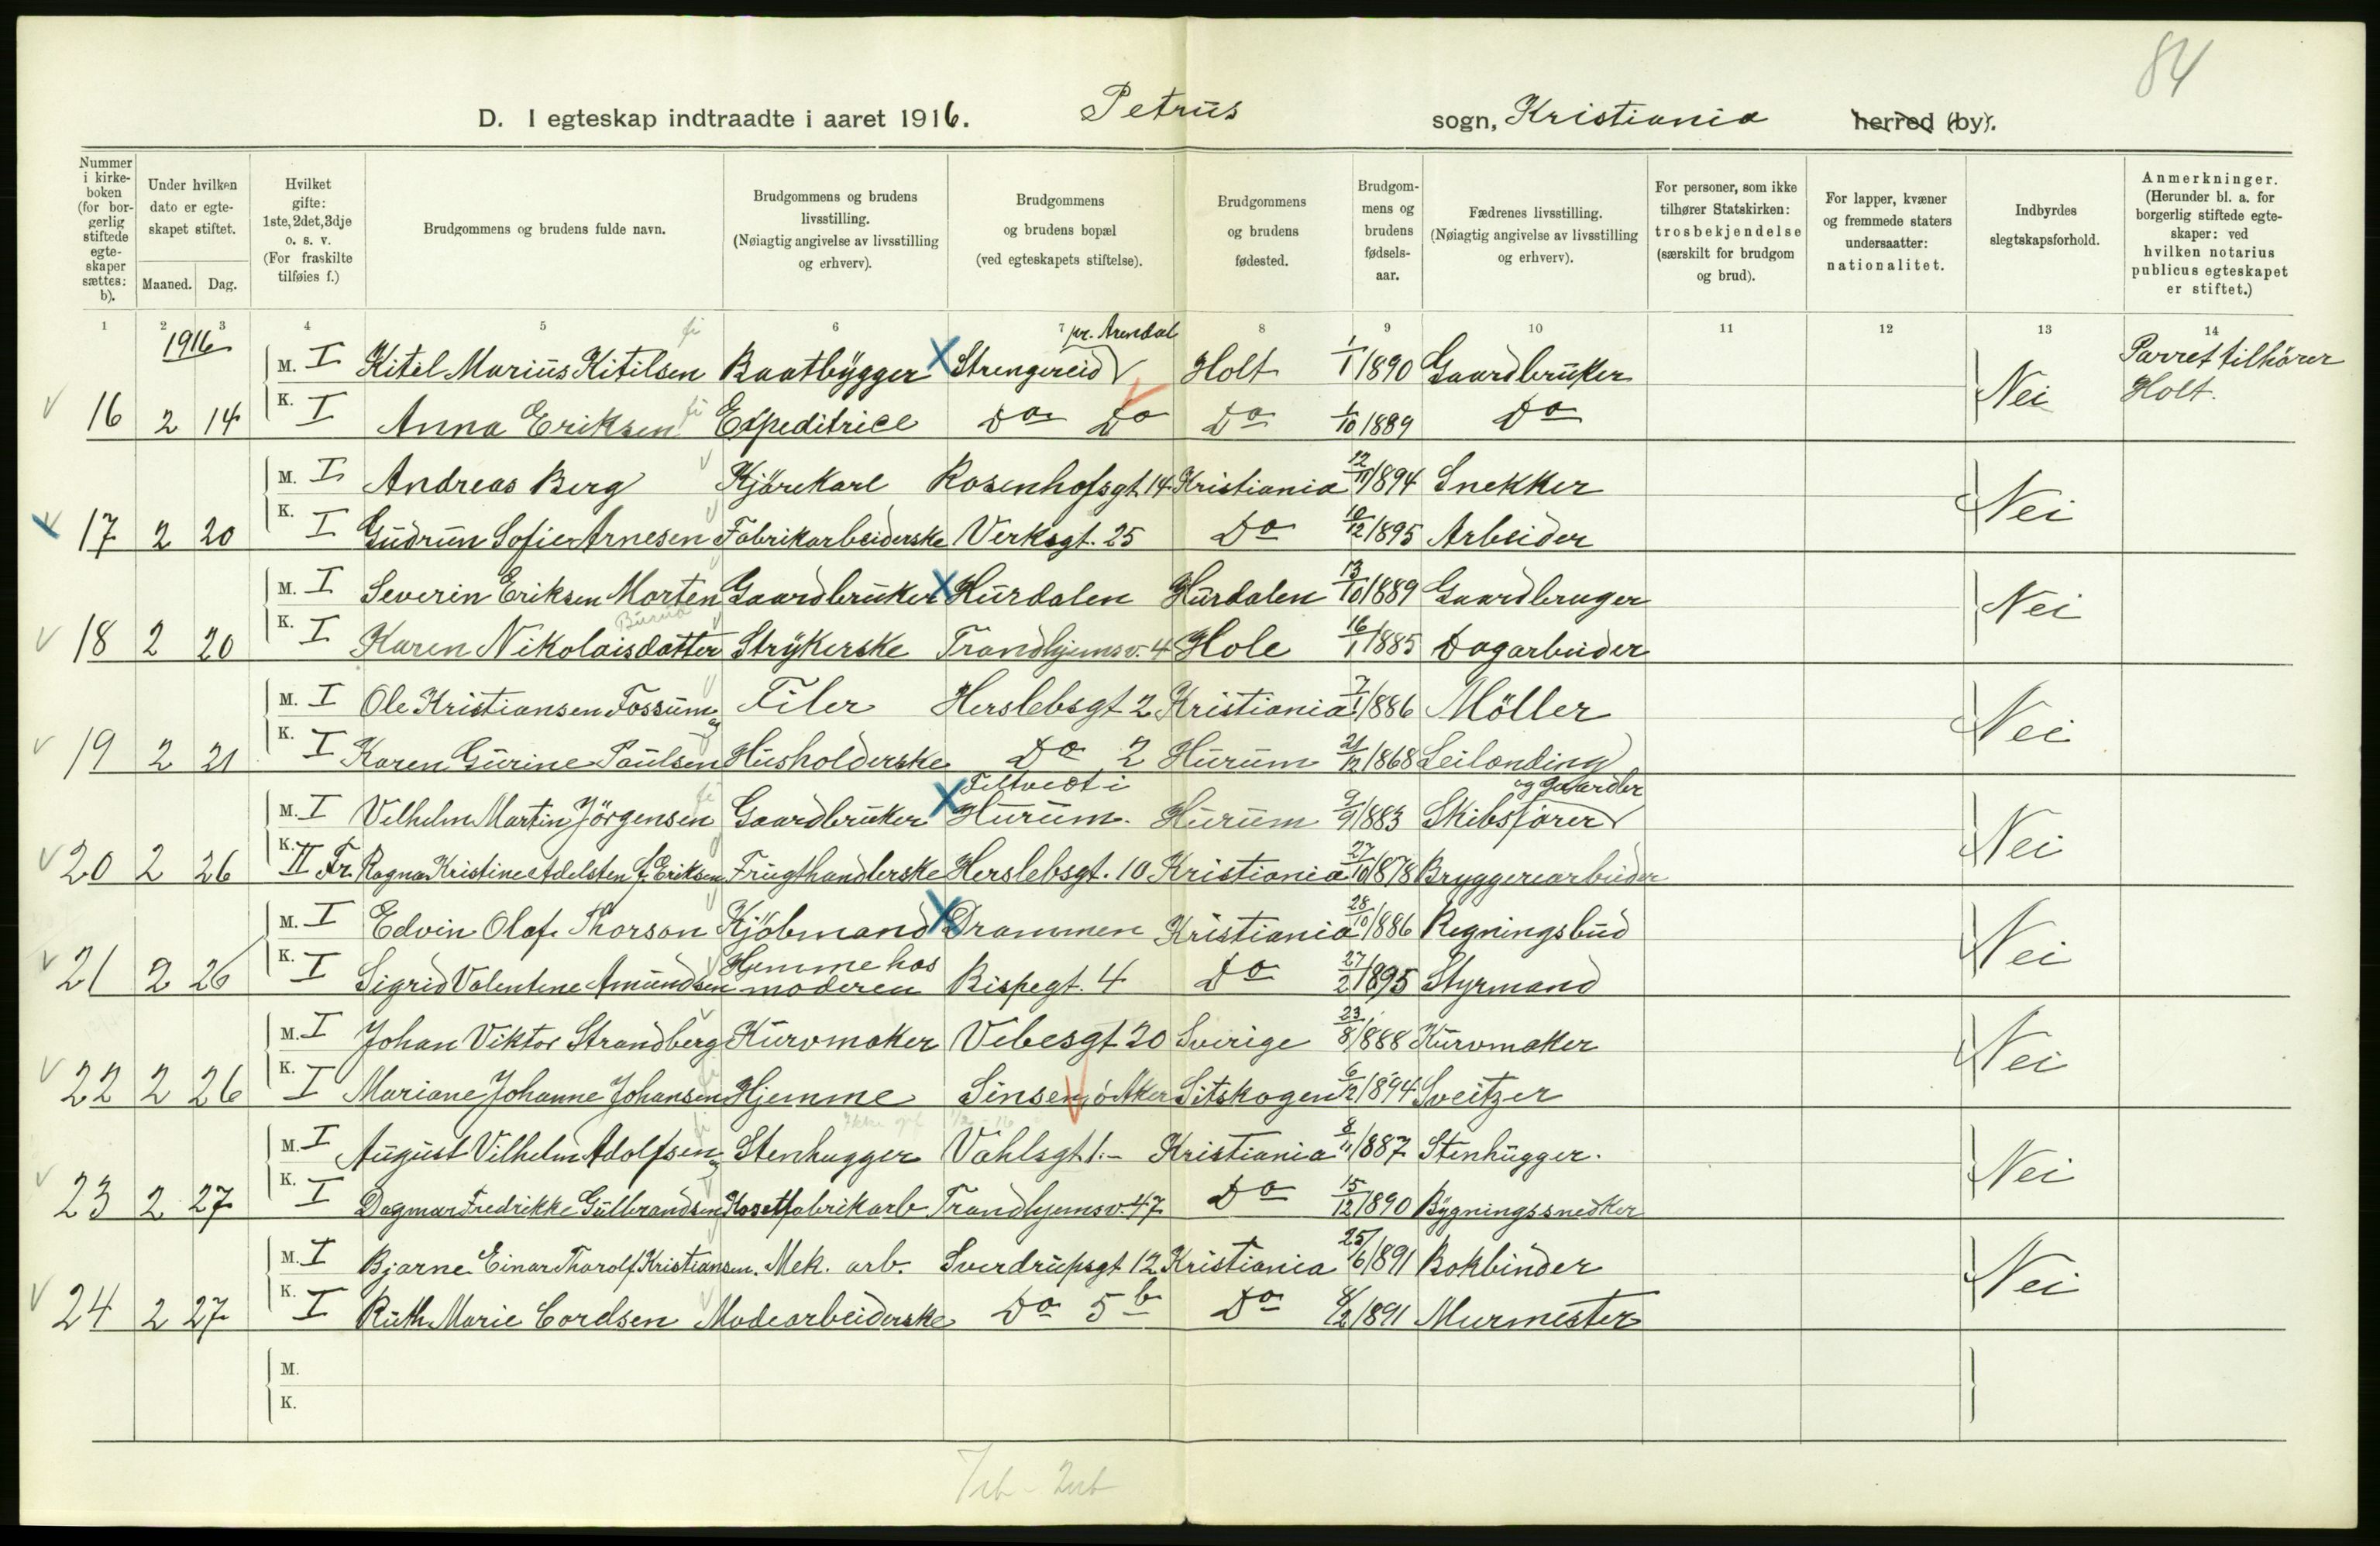 84
D. I egteskap indtraadte i aaret 1916. Petrus sogn, Kristiania herred (by).
Nummer i kirkeboken (for borgerlig stiftede egteskaper sættes: b).
Under hvilken dato er egteskapet stiftet.
Maaned. Dag.
Hvilket gifte: 1ste, 2det, 3dje o. s. v. (For fraskilte tilføies f.)
Brudgommens og brudens fulde navn.
Brudgommens og brudens livsstilling. (Nøiagtig angivelse av livsstilling og erhverv).
Brudgommens og brudens bopæl (ved egteskapets stiftelse).
Brudgommens og brudens fødested.
Brudgommens og brudens fødsels-aar.
Fædrenes livsstilling. (Nøiagtig angivelse av livsstilling og erhverv).
For personer, som ikke tilhører Statskirken: trosbekjendelse (særskilt for brudgom og brud).
For lapper, kvæner og fremmede staters undersaatter: nationalitet.
Indbyrdes slegtskapsforhold.
Anmerkninger. (Herunder bl. a. for borgerlig stiftede egteskaper: ved hvilken notarius publicus egteskapet er stiftet.)
1 2 3 4 5 6 7 8 9 10 11 12 13 14
1916
M. I Kitel Marius Kitilsen Baatbygger Strengereid pr. Arendal Holt 1/1 1890 Gaardbruker Nei Parret tilhører Holt.
16 2 14 K. I Anna Eriksen Expeditrice Do Do Do 1/10 1889 Do
M. I Andreas Berg Kjørekarl Rosenhofsgt 14 Kristiania 12/11 1894 Snekker Nei
17 2 20 K. I Gudrun Sofie Arnesen Fabrikarbeiderske Verksgt. 25 Do 10/12 1895 Arbeider
M. I Severin Eriksen Morten Gaardbruker Hurdalen Hurdalen 13/10 1889 Gaardbruger Nei
18 2 20 K. I Karen Nikolaisdatter Strykerske Trondhjemsv. 4 Hole 16/1 1885 Dagarbeider
M. I Ole Kristiansen Fossum Filer Herslebsgt 2 Kristiania 7/1 1886 Möller Nei
19 2 21 K. I Karen Gurine Paulsen Husholderske Do 2 Hurum 21/12 1868 Leilending
M. I Vilhelm Martin Jörgensen Gaardbruker Filtvedt i Hurum. Hurum 9/9 1883 Skibsfører og Gaardbr Nei
20 2 26 K. II Fr. Ragna Kristine Adelsten f. Eriksen Frugthandlerske Herslebsgt. 10 Kristiania 27/10 1878 Bryggerearbeider
M. I Edvin Olaf Thorson Kjöbmand Drammen Kristiania 28/10 1886 Regningsbud Nei
21 2 26 K. I Sigrid Valentine Amundsen Hjemme hos moderen Bispegt. 4 Do 27/2 1895 Styrmand
M. I Johan Viktor Strandberg Kurvmaker Vibesgt 20 Sverige 23/8 1888 Kurvmaker Nei
22 2 26 K. I Mariane Johanne Johansen Hjemme Sinsen, ö Aker Sitskogen 6/12 1894 Sveitzer
M. I August Vilhelm Adolfsen Stenhugger Vahlsgt 1.- Kristiania 8/11 1887 Stenhugger. Nei
23 2 27 K. I Dagmar Fredrikke Gulbrandsen Korsetfabrikarb Trondhjemsv. 47 Do 15/12 1890 Bygningssnedker
M. I Bjarne Einar Thorolf Kristiansen. Mek. arb. Sverdrupsgt 12 Kristiania 25/6 1891 Bokbinder Nei
24 2 27 K. I Ruth Marie Cordsen Modearbeiderske Do 5 b Do 8/2 1891 Murmester
M.
K.